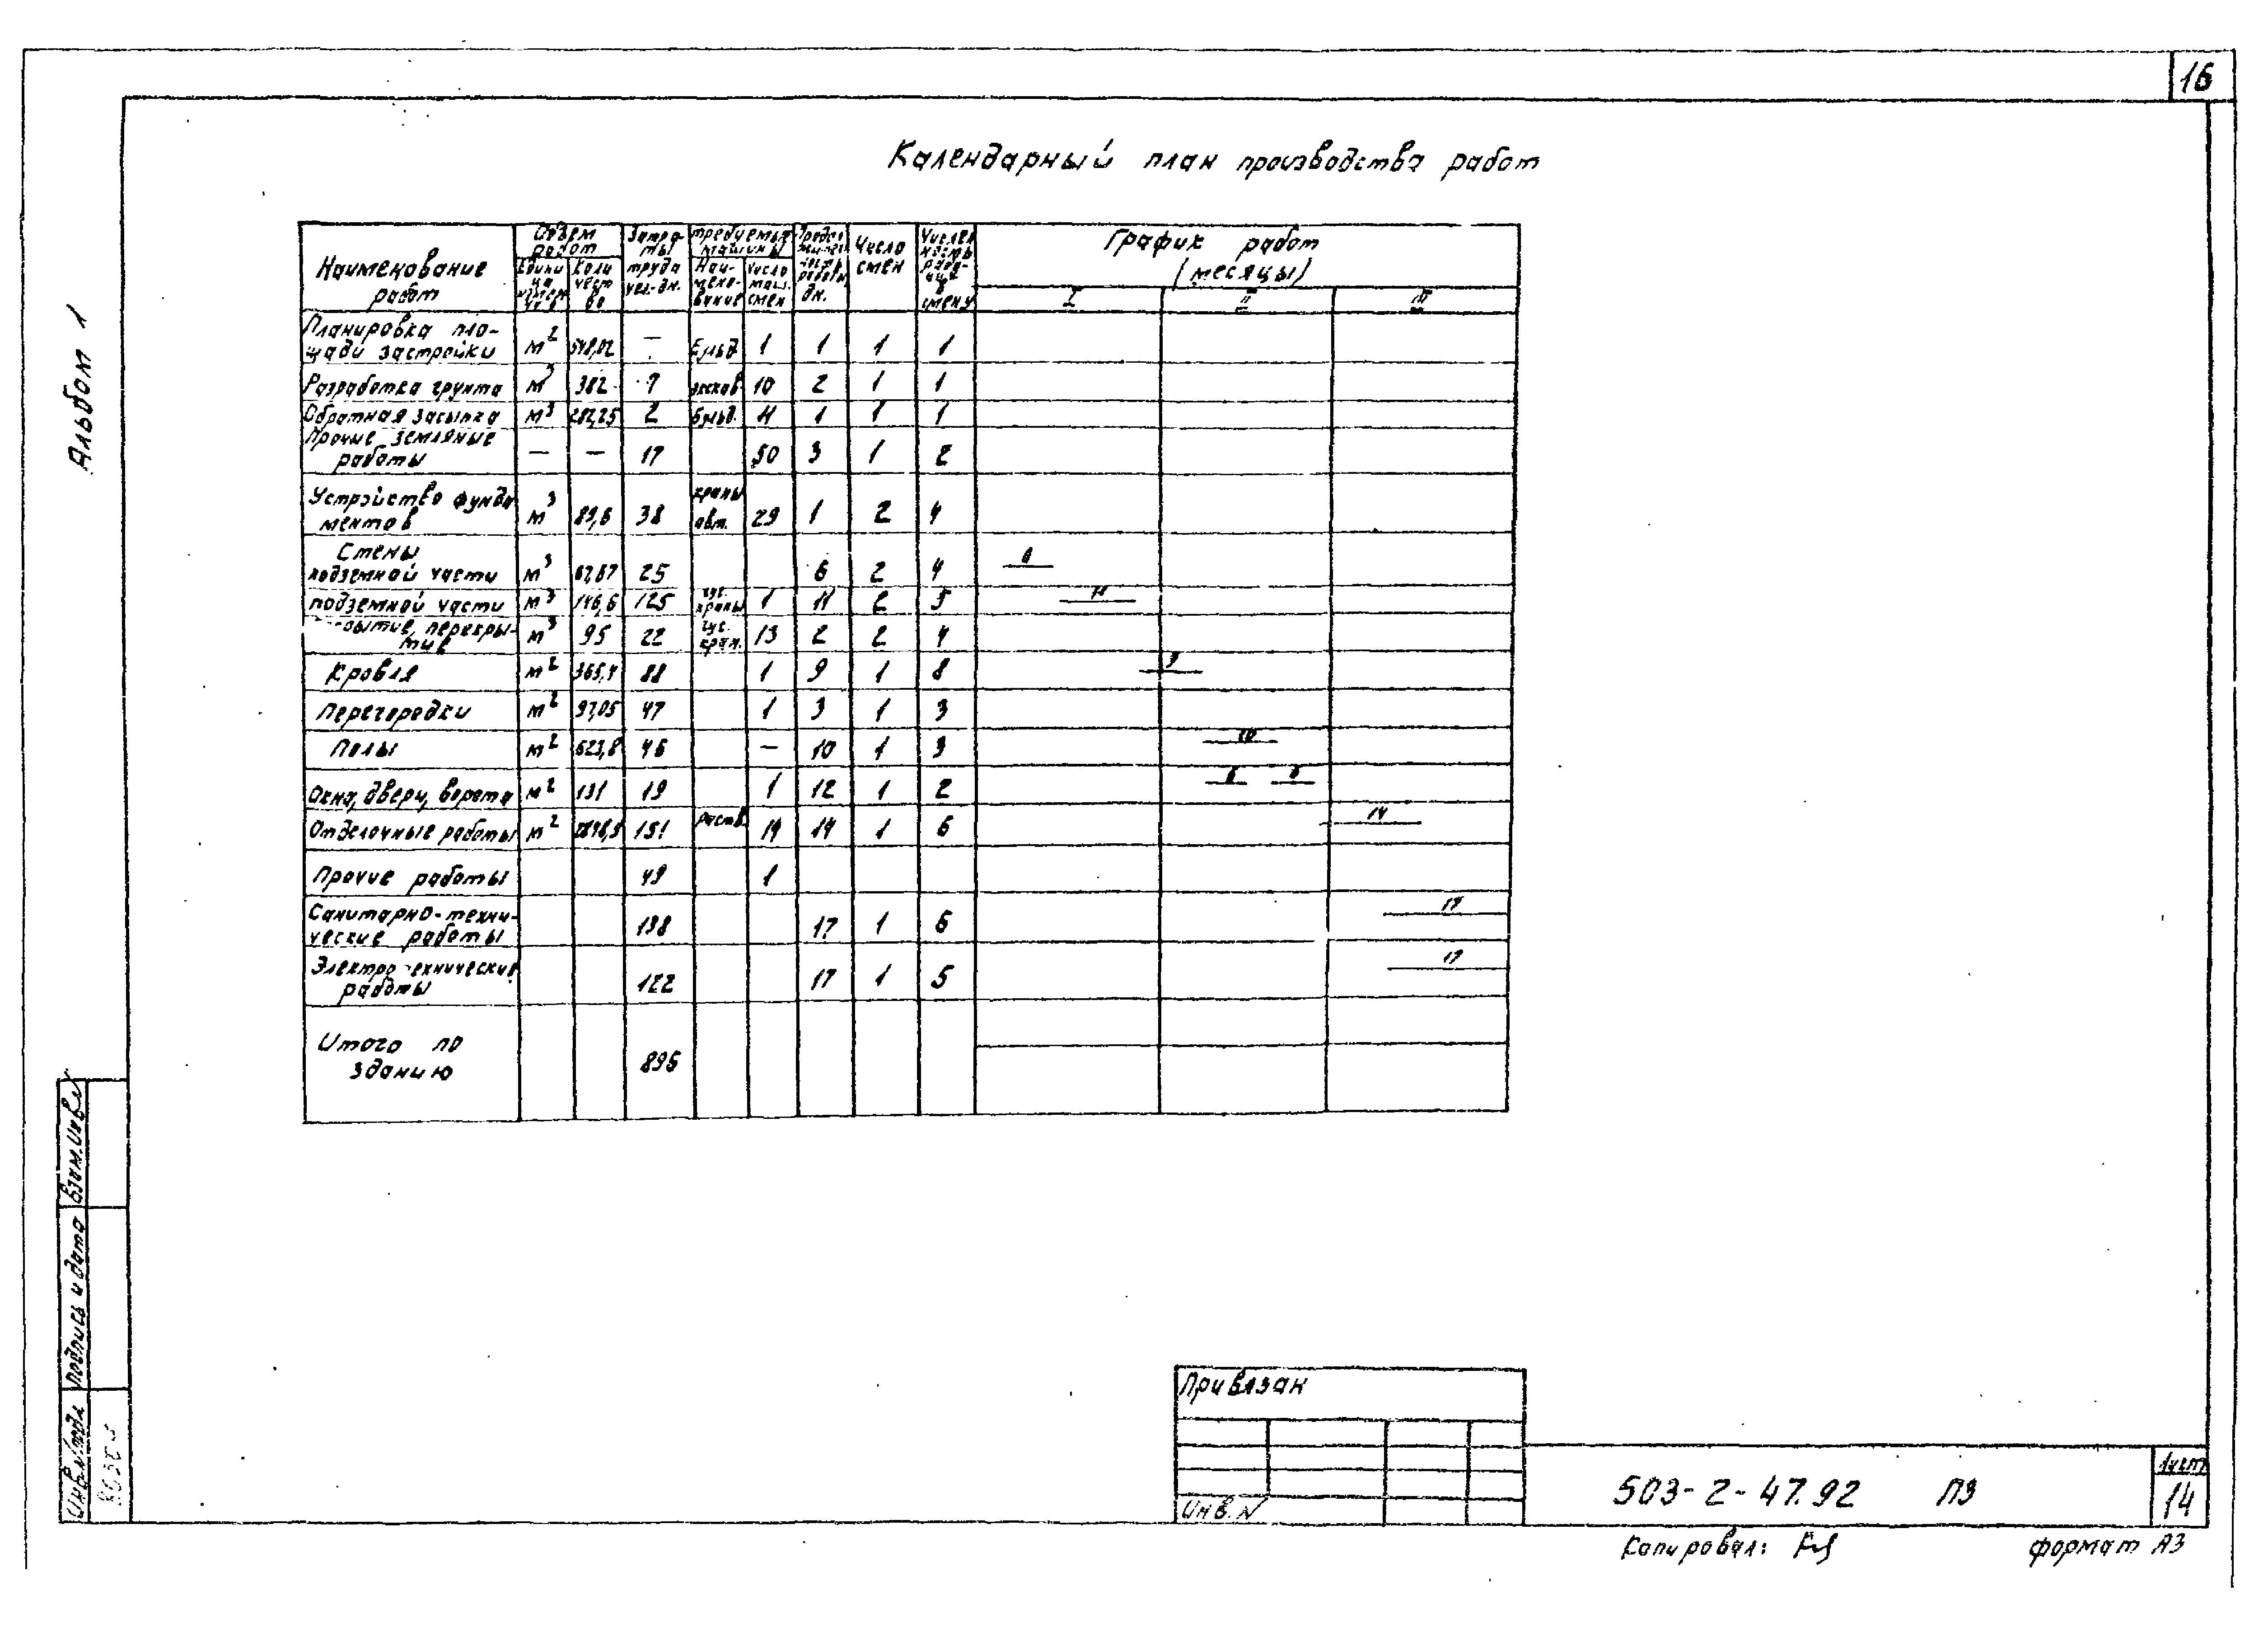 16
Календарный план производства работ
Альбом 1
Наименование работ
Объем работ
Едини ца
Коли чест во
Затра- ты труда чел.-дн.
Требуемые машины
Наи- мено- вание
Число маш. смен
дн.
Число смен
Числен ность в смену
График работ
(месяцы)
I II III
Планировка пло-
щади застройки м2 548,02 — Бульд. 1 1 1 1
Разработка грунта м3 382 7 экскав 10 2 1 1
Обратная засыпка м3 282,25 2 бульд. 4 1 1 1
Прочие земляные
работы — — 17 50 3 1 2
Устройство фунда
ментов м3 89,6 38 краны авт. 29 1 2 4
Стены
подземной части м3 67,67 25 6 2 4 6
подземной части м3 146,6 125 гус. краны 1 11 2 5 11
перекры-
тие м3 95 22 гус. кран. 13 2 2 4
Кровля м2 365,4 88 1 9 1 8 9
Перегородки м2 97,05 47 1 3 1 3
Полы м2 623,8 46 — 10 1 3 10
Окна, двери, ворота м2 131 19 1 12 1 2 6 6
Отделочные работы м2 151 раств. 14 14 1 6 14
Прочие работы 49 1
Санитарно-техни-
ческие работы 138 17 1 6 17
Электротехнические
работы 122 17 1 5 17
Итого по
зданию 896
Взам. инв. №
Подпись и дата
Инв. № подл.
Привязан
Инв. №
503-2-47.92 ПЗ
Лист
14
Копировал:
формат А3